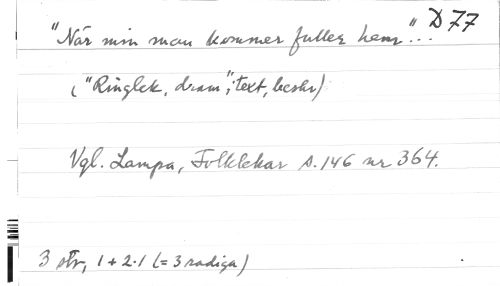 "När min man kommer fuller hem"... D 77
("Ringlek, dram", text, beskr)
Vgl. Lampa, Folklekar s. 146 nr 364.
3 str, 1+2.1 (= 3 radiga)